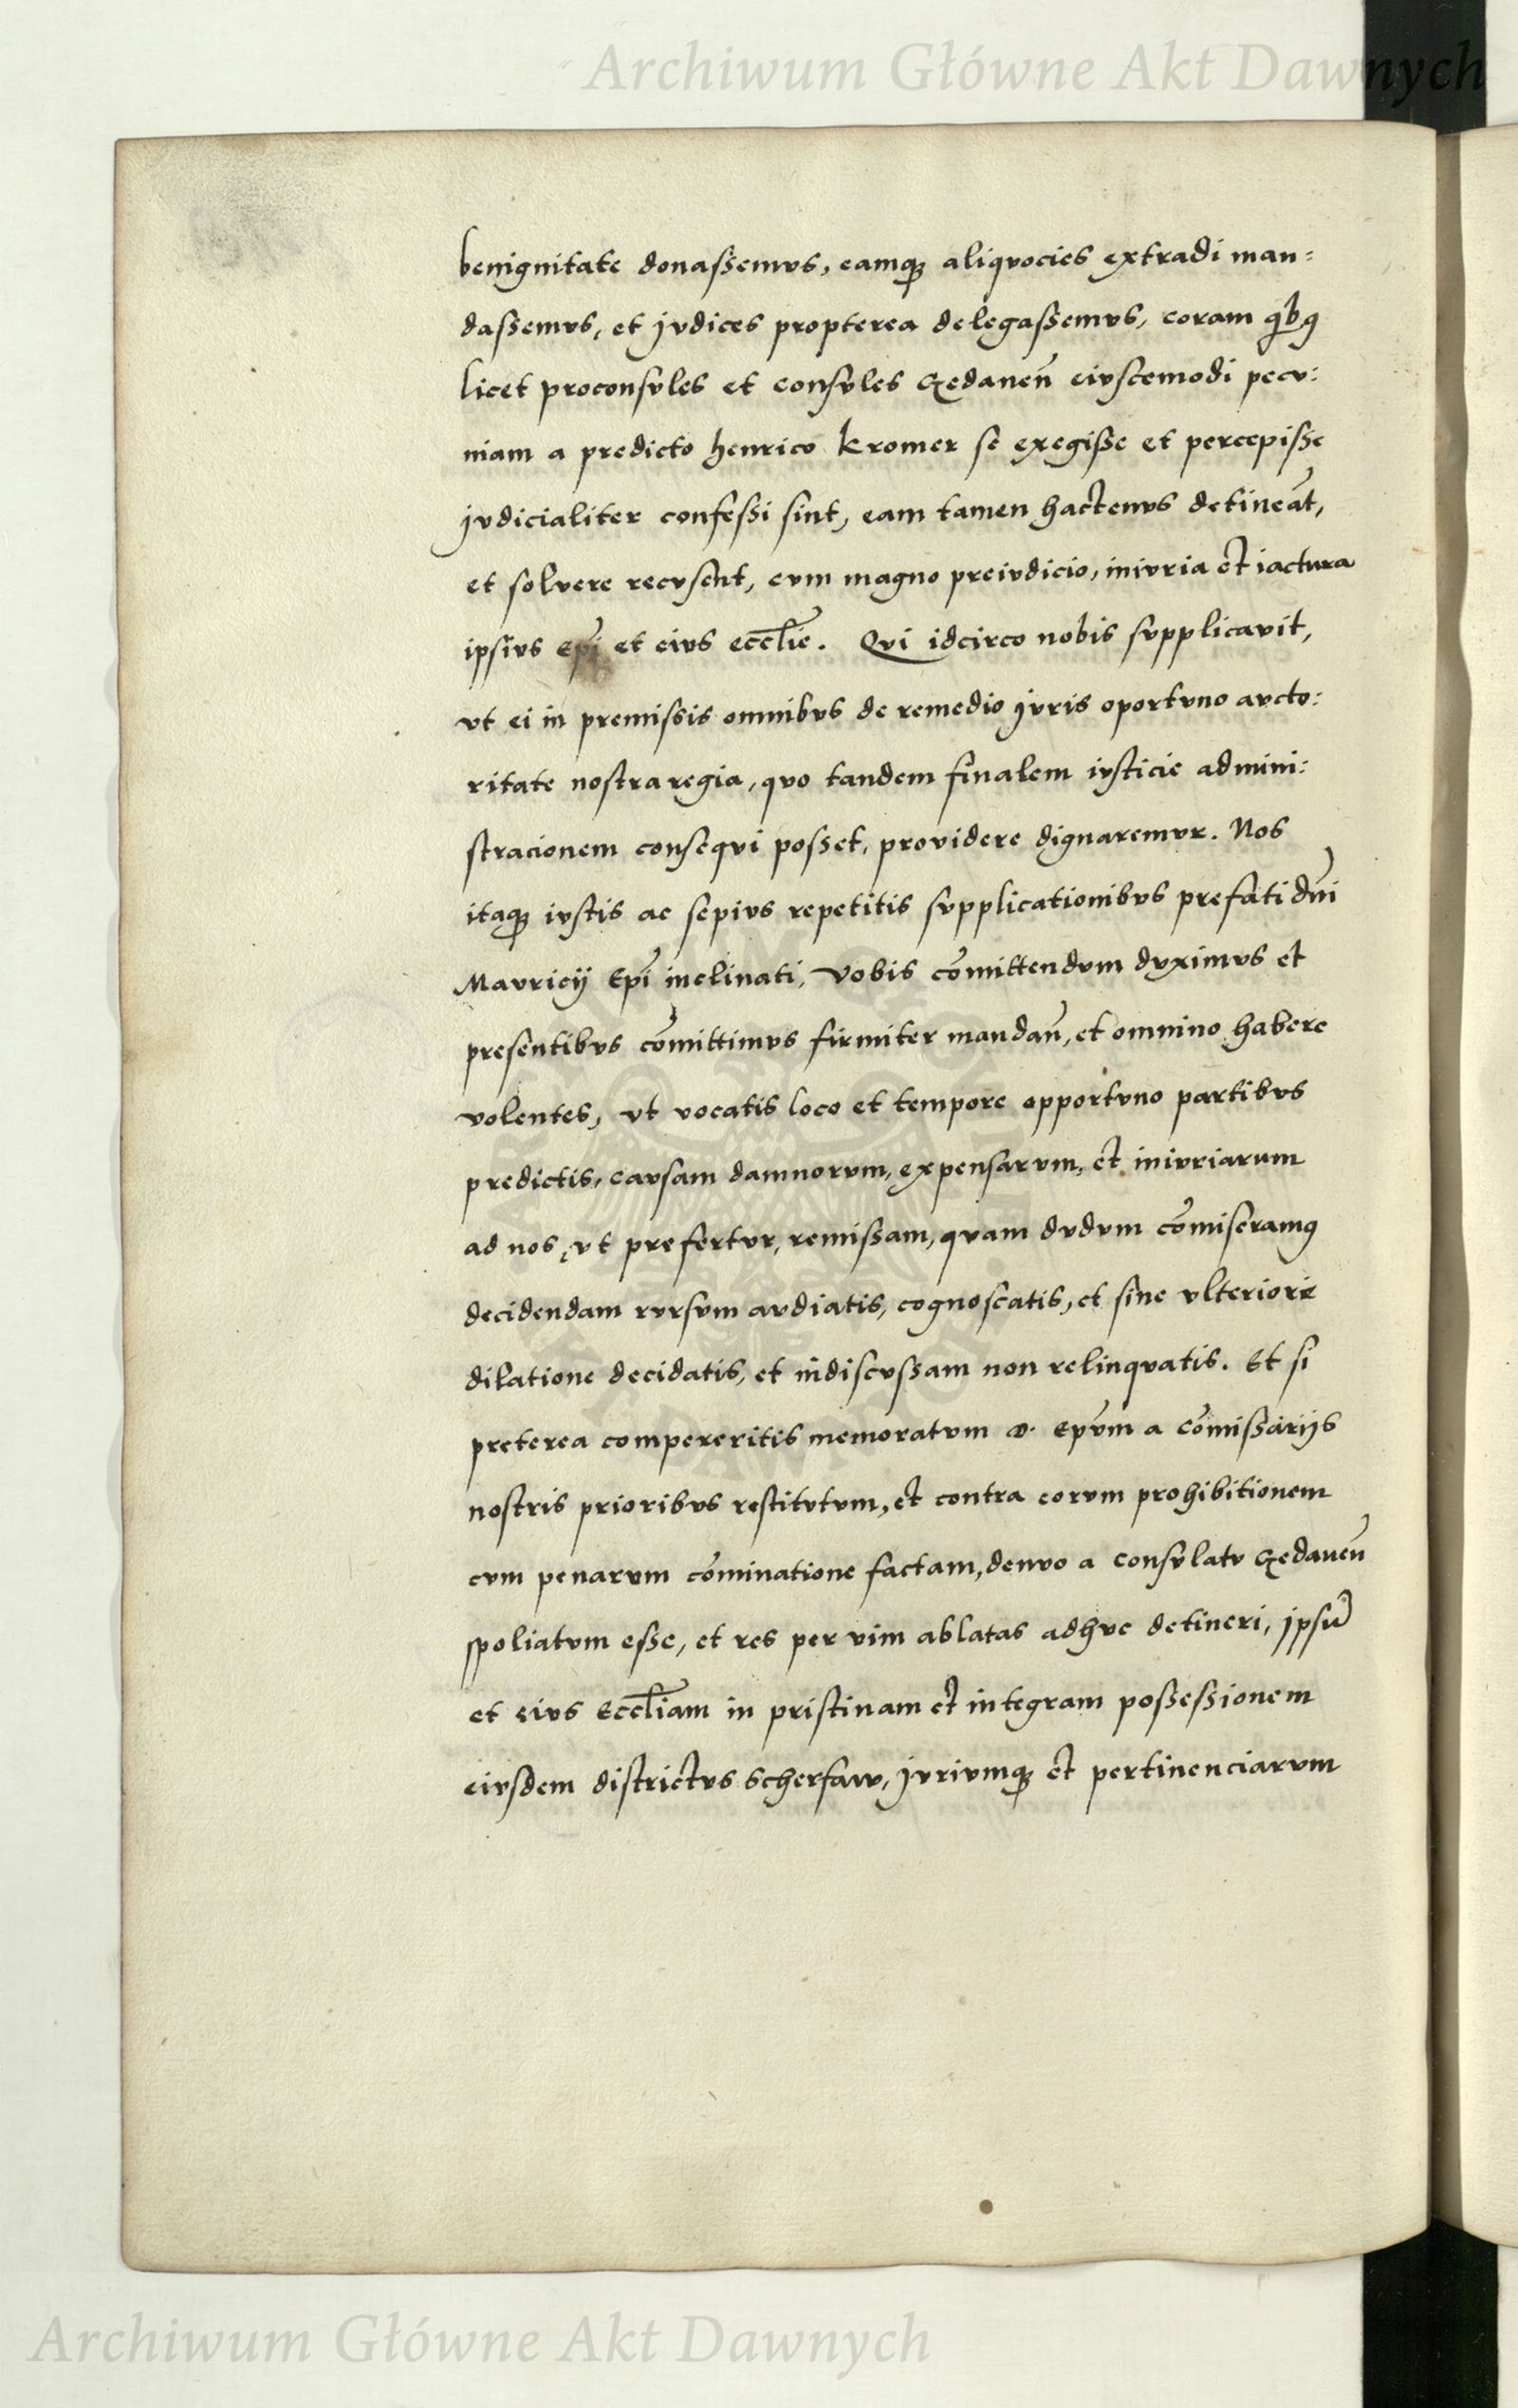 Archiwum Główne Akt Dawnych
benignitate donassemvs, eamq₃ aliqvocies extradi man:
dassemvs, et jvdices propterea delegassemvs, coram qͥbꝯ
licet proconsvles et consvles Gedaneñ eivscemodi pecv:
niam a predicto henrico kromer se exegisse et percepisse
jvdicialiter confessi sint, eam tamen hactenvs detineāt,
et solvere recvsent, cvm magno preivdicio, inivria et iactura
ipsivs Ep̄i et eivs eccl̄ie. Qvi idcirco nobis svpplicavit,
vt ei in premissis omnibvs de remedio jvris oportvno avcto:
ritate nostra regia, qvo tandem finalem ivsticie admini:
stracionem conseqvi posset, providere dignaremvr. Nos
itaq₃ ivstis ac sepivs repetitis svpplicationibvs prefati dn̄i
Mavricij Ep̄i inclinati, vobis cōmittendvm dvximvs et
presentibvs cōmittimvs firmiter mandan̄, et omnino habere
volentes, vt vocatis loco et tempore opportvno partibvs
predictis, cavsam damnorvm, expensarvm, et inivriarum
ad nos, vt prefertvr, remissam, qvam dvdvm cōmiseramꝯ
decidendam rvrsvm avdiatis, cognoscatis, et sine vlteriore
dilatione decidatis, et indiscvssam non relinqvatis. Et si
preterea compereritis memoratvm D. Ep̄vm a Cōmissarijs
nostris prioribvs restitvtvm, et contra eorvm prohibitionem
cvm penarvm cōminatione factam, denvo a Consvlatv Gedaneñ
spoliatvm esse, et res per vim ablatas adhvc detineri, jpsū
et eivs Eccl̄iam in pristinam et integram possessionem
eivsdem districtvs Scherfaw, jvrivmq₃ et pertinenciarvm
Archiwum Główne Akt Dawnych